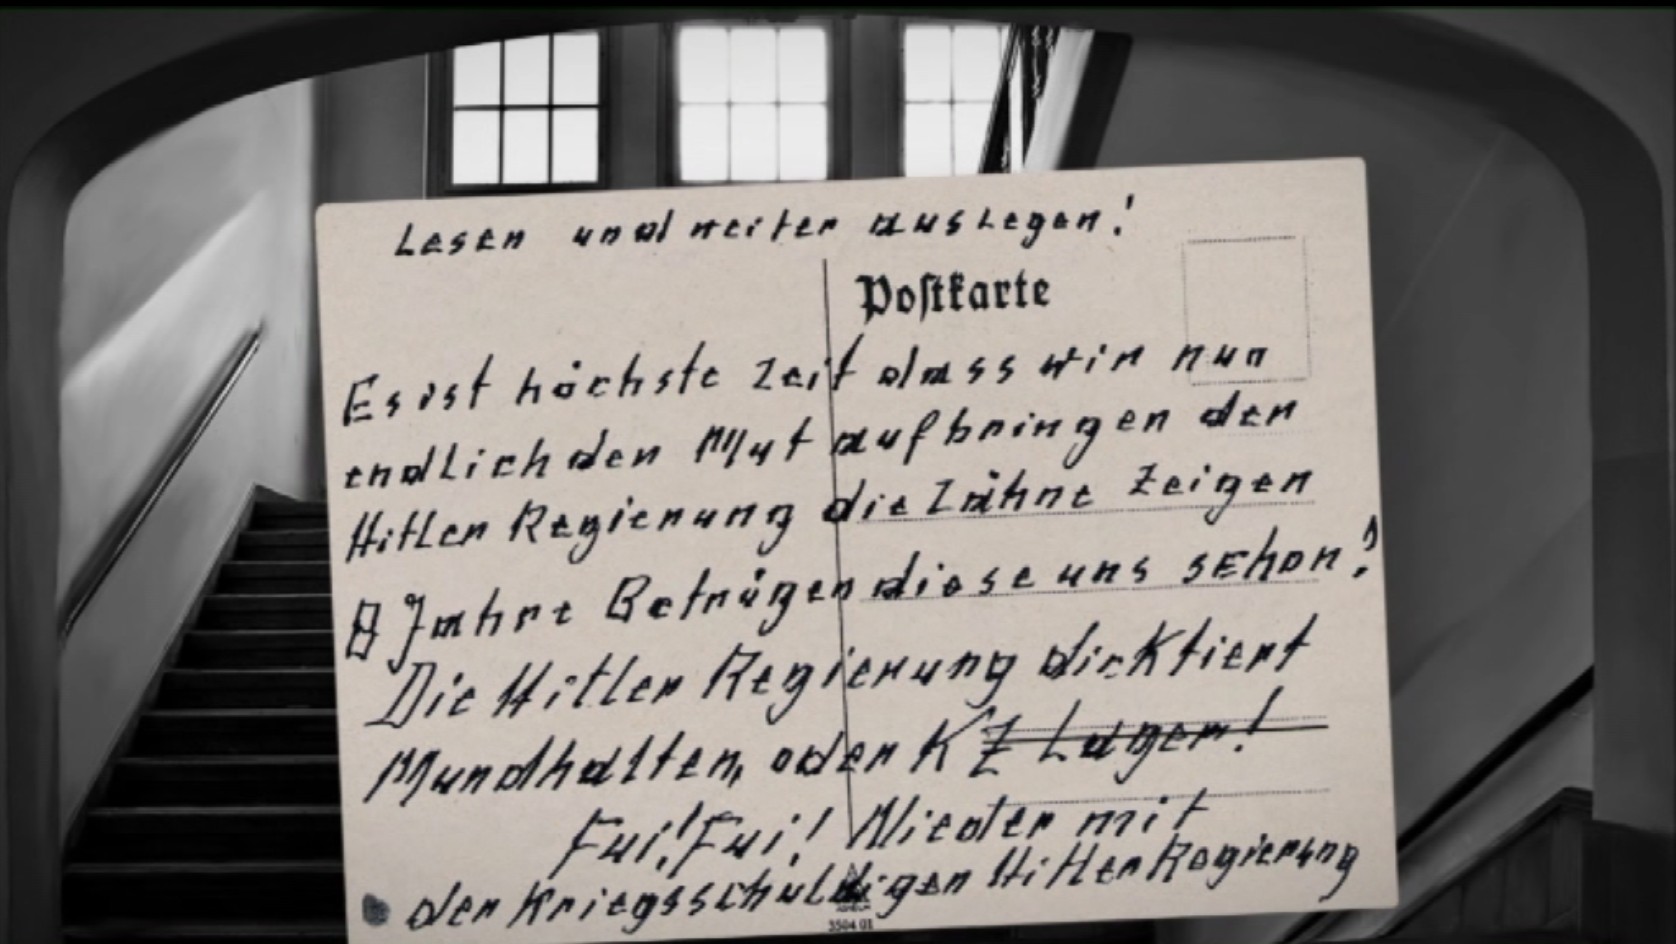 Lesen und weiter auslegen!
Postkarte
Es ist höchste Zeit dass wir nun
endlich den Mut aufbringen der
Hitler Regierung die Zähne Zeigen
8 Jahre Betrügen diese uns schon!
Die Hitler Regierung dicktiert
Mundhalten, oder KZ Lager!
Fui! Fui! Nieder mit
der Kriegsschuldigen Hitler Regierung
3504 01